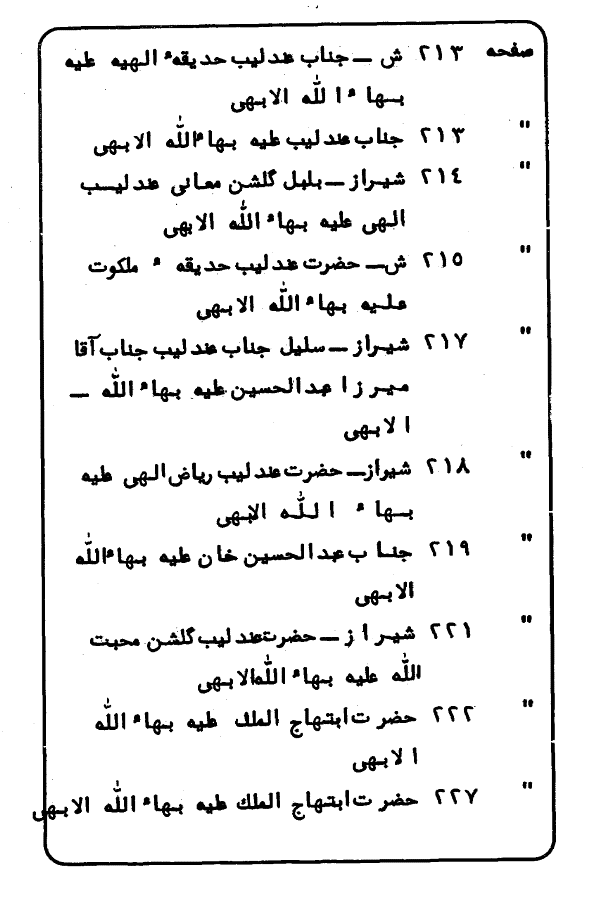 صفحه ٢١٣ ش ــ جناب عندلیب حدیقهء الهیه علیه
بهاءالله الابهی
" ٢١٣ جناب عندلیب علیه بهاءالله الابهی
" ٢١٤ شیراز ــ بلبل گلشن معانی عندلیب
الهی علیه بهاءالله الابهی
" ٢١٥ ش ــ حضرت عندلیب حدیقهء ملکوت
علیه بهاءالله الابهی
" ٢١٧ شیراز ــ سلیل جناب عندلیب جناب آقا
میرزا عبدالحسین علیه بهاءالله ــ
الابهی
" ٢١٨ شیراز ــ حضرت عندلیب ریاض الهی علیه
بهاءالله الابهی
" ٢١٩ جناب عبدالحسین خان علیه بهاءالله
الابهی
" ٢٢١ شیراز ــ حضرت عندلیب گلشن محبت
الله علیه بهاءالله الابهی
" ٢٢٢ حضرت ابتهاج الملک علیه بهاءالله
الابهی
" ٢٢٧ حضرت ابتهاج الملک علیه بهاءالله الابهی